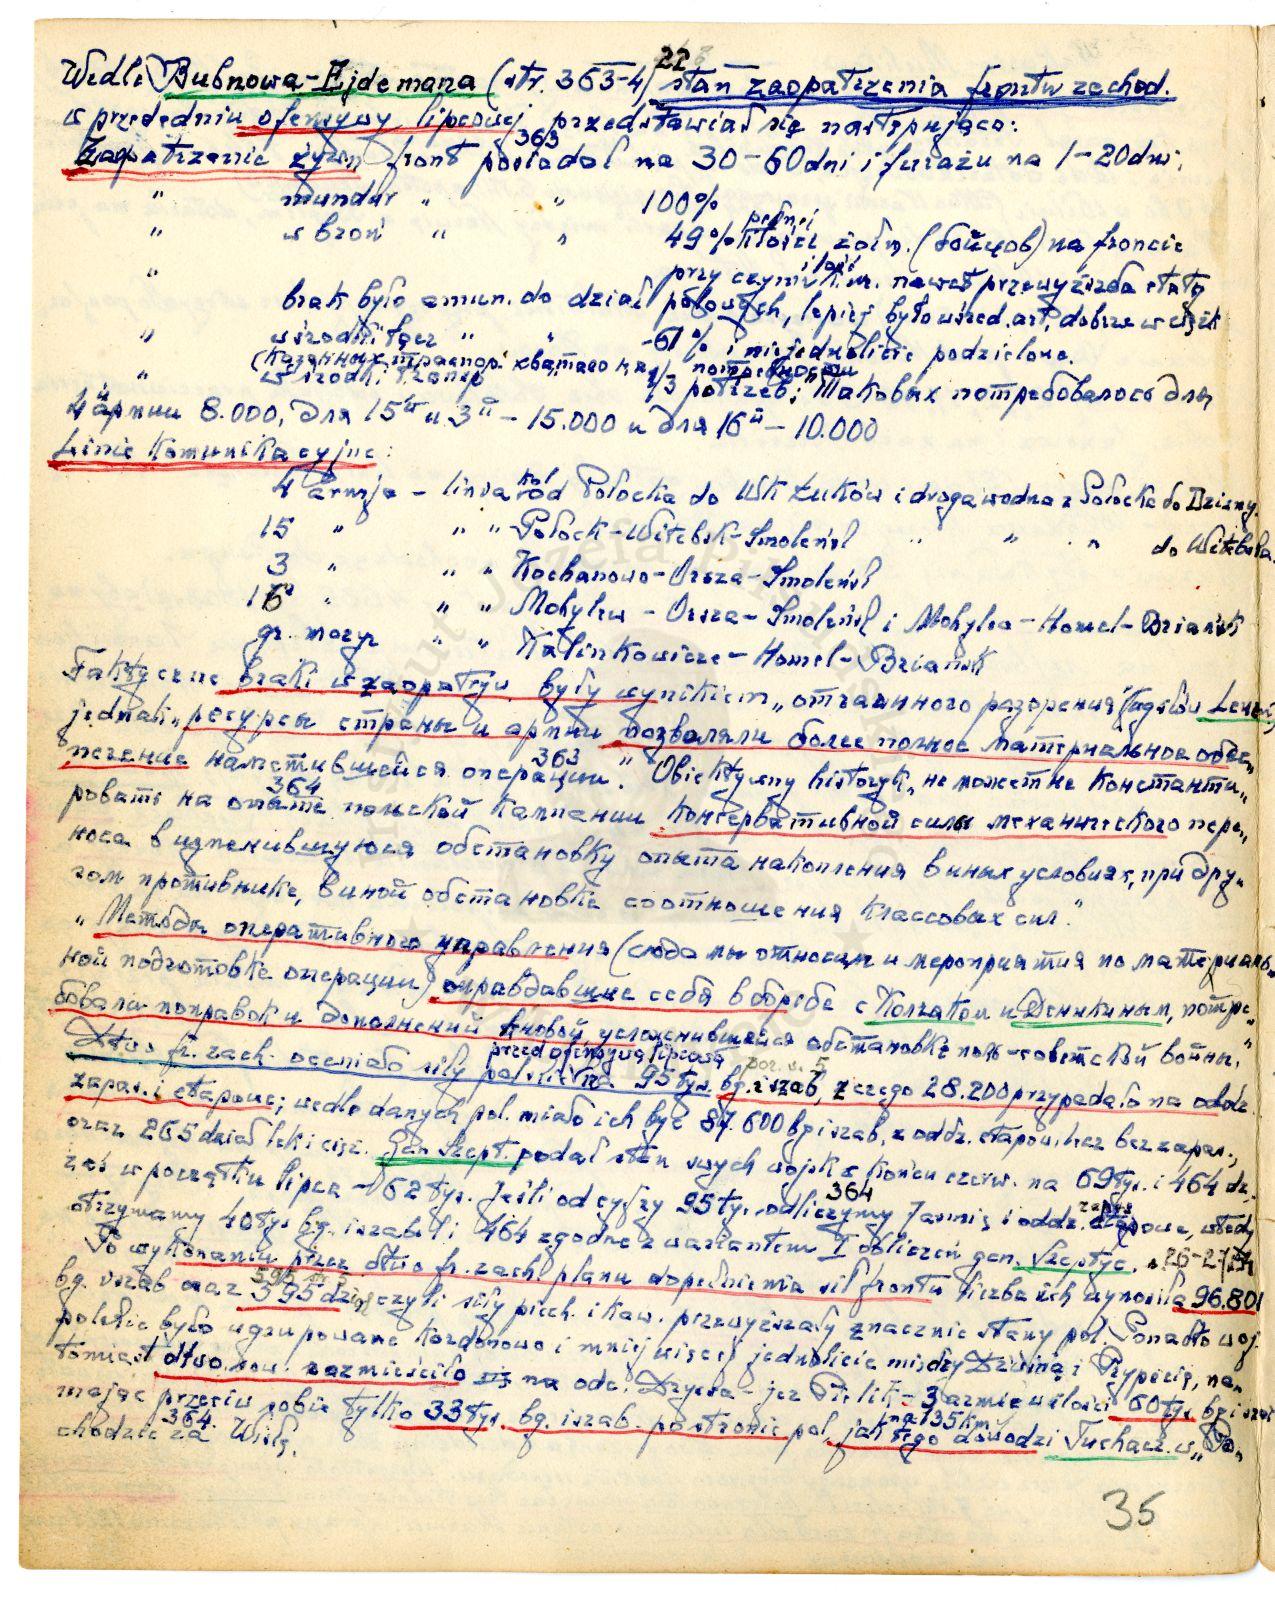 22
Wedle Bubnowa-Ejdemana (str. 363-4) stan zaopatrzenia frontu zachod.
w przededniu ofensywy lipcowej przedstawiał się następująco:
363
Zaopatrzenie żywn. front posiadał na 30-60 dni i furażu na 1-20 dni;
" mundur " " 100%
" w broń " " 49% pełnej ilości żołn. (бойцов) na froncie
" przy czym ilość nawet przewyższała etaty
brak było amun. do dział polowych, lepiej było wśred. art, dobrze w ciężk
" w środki łącz " " -61% i niejednolicie podzielono.
(Казенных транспор. хватало на 1/3 потребности
" w środki transp 1/3 potrzeb; "Таковых потребовалось для
4й армии 8.000, для 15й и 3й - 15.000 и для 16й - 10.000
Linie Komunikacyjne:
4 armja - linia kol od Połocka do Wk Łuków i droga wodna z Połocka do Dzisny.
15 " " " Połock-Witebsk-Smoleńsk " " " do Witebska.
3 " " " Kochanowo-Orsza-Smoleńsk
16 " " " Mohylew - Orsza-Smoleńsk i Mohylew-Homel-Briańsk
gr. mozyr " " Kalinkowicze-Homel-Briańsk
Faktyczne braki w zaopatrzu były wynikiem „отчаянного разорения" (wg słów Lenina),
jednak „ресурсы страны и армии позволяли более полное материальное обес„
печение наметившейся операции." 363 Obiektywny historyk „не может не констати„
364
ровать на опыте польской кампании консервативной силы механического пере„
носа в изменившуюся обстановку опыта накопления в иных условиях, при дру„
гом противнике, в иной обстановке соотношения классовых сил."
„Методы оперативного управления (сюда мы относим и мероприятия по материаль„
ной подготовке операции) оправдавшие себя в борьбе с Колчаком и Деникиным, потре„
бовали поправок и дополнений к новой усложнившейся обстановке поль-советской войны."
przed ofensywą lipcową por. s. 5
Dtwo fr. zach. oceniało siły polskie na 95 tys. bg. i szab, z czego 28.200 przypadało na oddz.
zapas. i etapowe; wedle danych pol. miało ich być 87.600 bg i szab, z oddz. etapow. lecz bez zapas.,
oraz 265 dział lek i cięż. Gen Szept. podał stan swych wojsk z końcu czerw. na 69 tys. i 464 dz.
zaś w początku lipca - 62 tys. Jeśli od cyfry 95 tys. odliczymy 7 armię i oddz. zapas etapowe, wtedy
364
otrzymamy 40 tys bg. i szabel i 464 zgodne z wariantem I obliczeń gen. Szeptyc.
Po wykonaniu przez dtwo fr. zach. planu dopełnienia sił frontu liczba ich wynosiła 96.801
bg. i szab oraz 395 dział czyli siły piech. i kaw. przewyższały znacznie stany pol. Ponadto woj.
polskie było ugrupowane kordonowo i mniej więcej jednolicie między Dźwiną i Prypecią, na„
tomiast dtwo sow. rozmieściło na odc. Dryssa - jez Pielik - 3 armie w ilości 60 tys. bg i szab
mając przeciw sobie tylko 33 tys. bg. i szab. po stronie pol, na 135 km jak tego dowodzi Tuchacz. w „Po„
364.
chodzie za Wisłę.
35